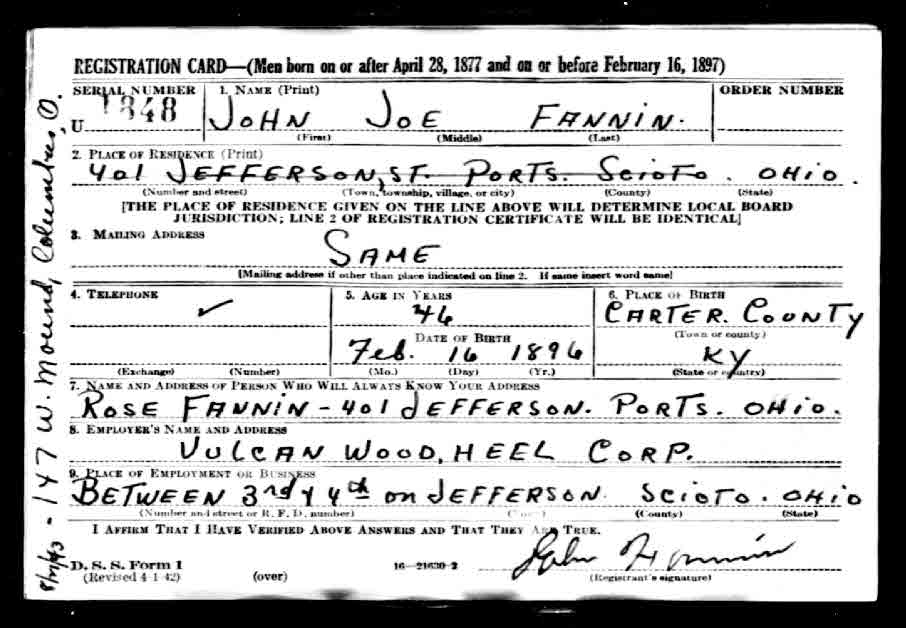 REGISTRATION CARD—(Men born on or after April 28, 1877 and on or before February 16, 1897)
SERIAL NUMBER
1. NAME (Print)
ORDER NUMBER
U 1848
JOHN JOE FANNIN.
(First) (Middle) (Last)
2. PLACE OF RESIDENCE (Print)
401 JEFFERSON, ST. PORTS. SCIOTO. OHIO.
(Number and street) (Town, township, village, or city) (County) (State)
[THE PLACE OF RESIDENCE GIVEN ON THE LINE ABOVE WILL DETERMINE LOCAL BOARD
JURISDICTION; LINE 2 OF REGISTRATION CERTIFICATE WILL BE IDENTICAL]
3. MAILING ADDRESS
SAME
[Mailing address if other than place indicated on line 2. If same insert word same]
4. TELEPHONE
✓
(Exchange) (Number)
5. AGE IN YEARS
46
DATE OF BIRTH
Feb. 16 1896
(Mo.) (Day) (Yr.)
6. PLACE OF BIRTH
CARTER. COUNTY
(Town or county)
KY
(State or country)
7. NAME AND ADDRESS OF PERSON WHO WILL ALWAYS KNOW YOUR ADDRESS
ROSE FANNIN - 401 JEFFERSON. PORTS. OHIO.
8. EMPLOYER'S NAME AND ADDRESS
VULCAN WOOD, HEEL CORP.
9. PLACE OF EMPLOYMENT OR BUSINESS
BETWEEN 3rd & 4th on JEFFERSON. SCIOTO. OHIO
(Number and street or R. F. D. number) (County) (State)
I AFFIRM THAT I HAVE VERIFIED ABOVE ANSWERS AND THAT THEY ARE TRUE.
D. S. S. Form 1
(Revised 4-1-42) (over)
16—21630-2
John Fannin
(Registrant's signature)
147 W. Mound, Columbus, O.